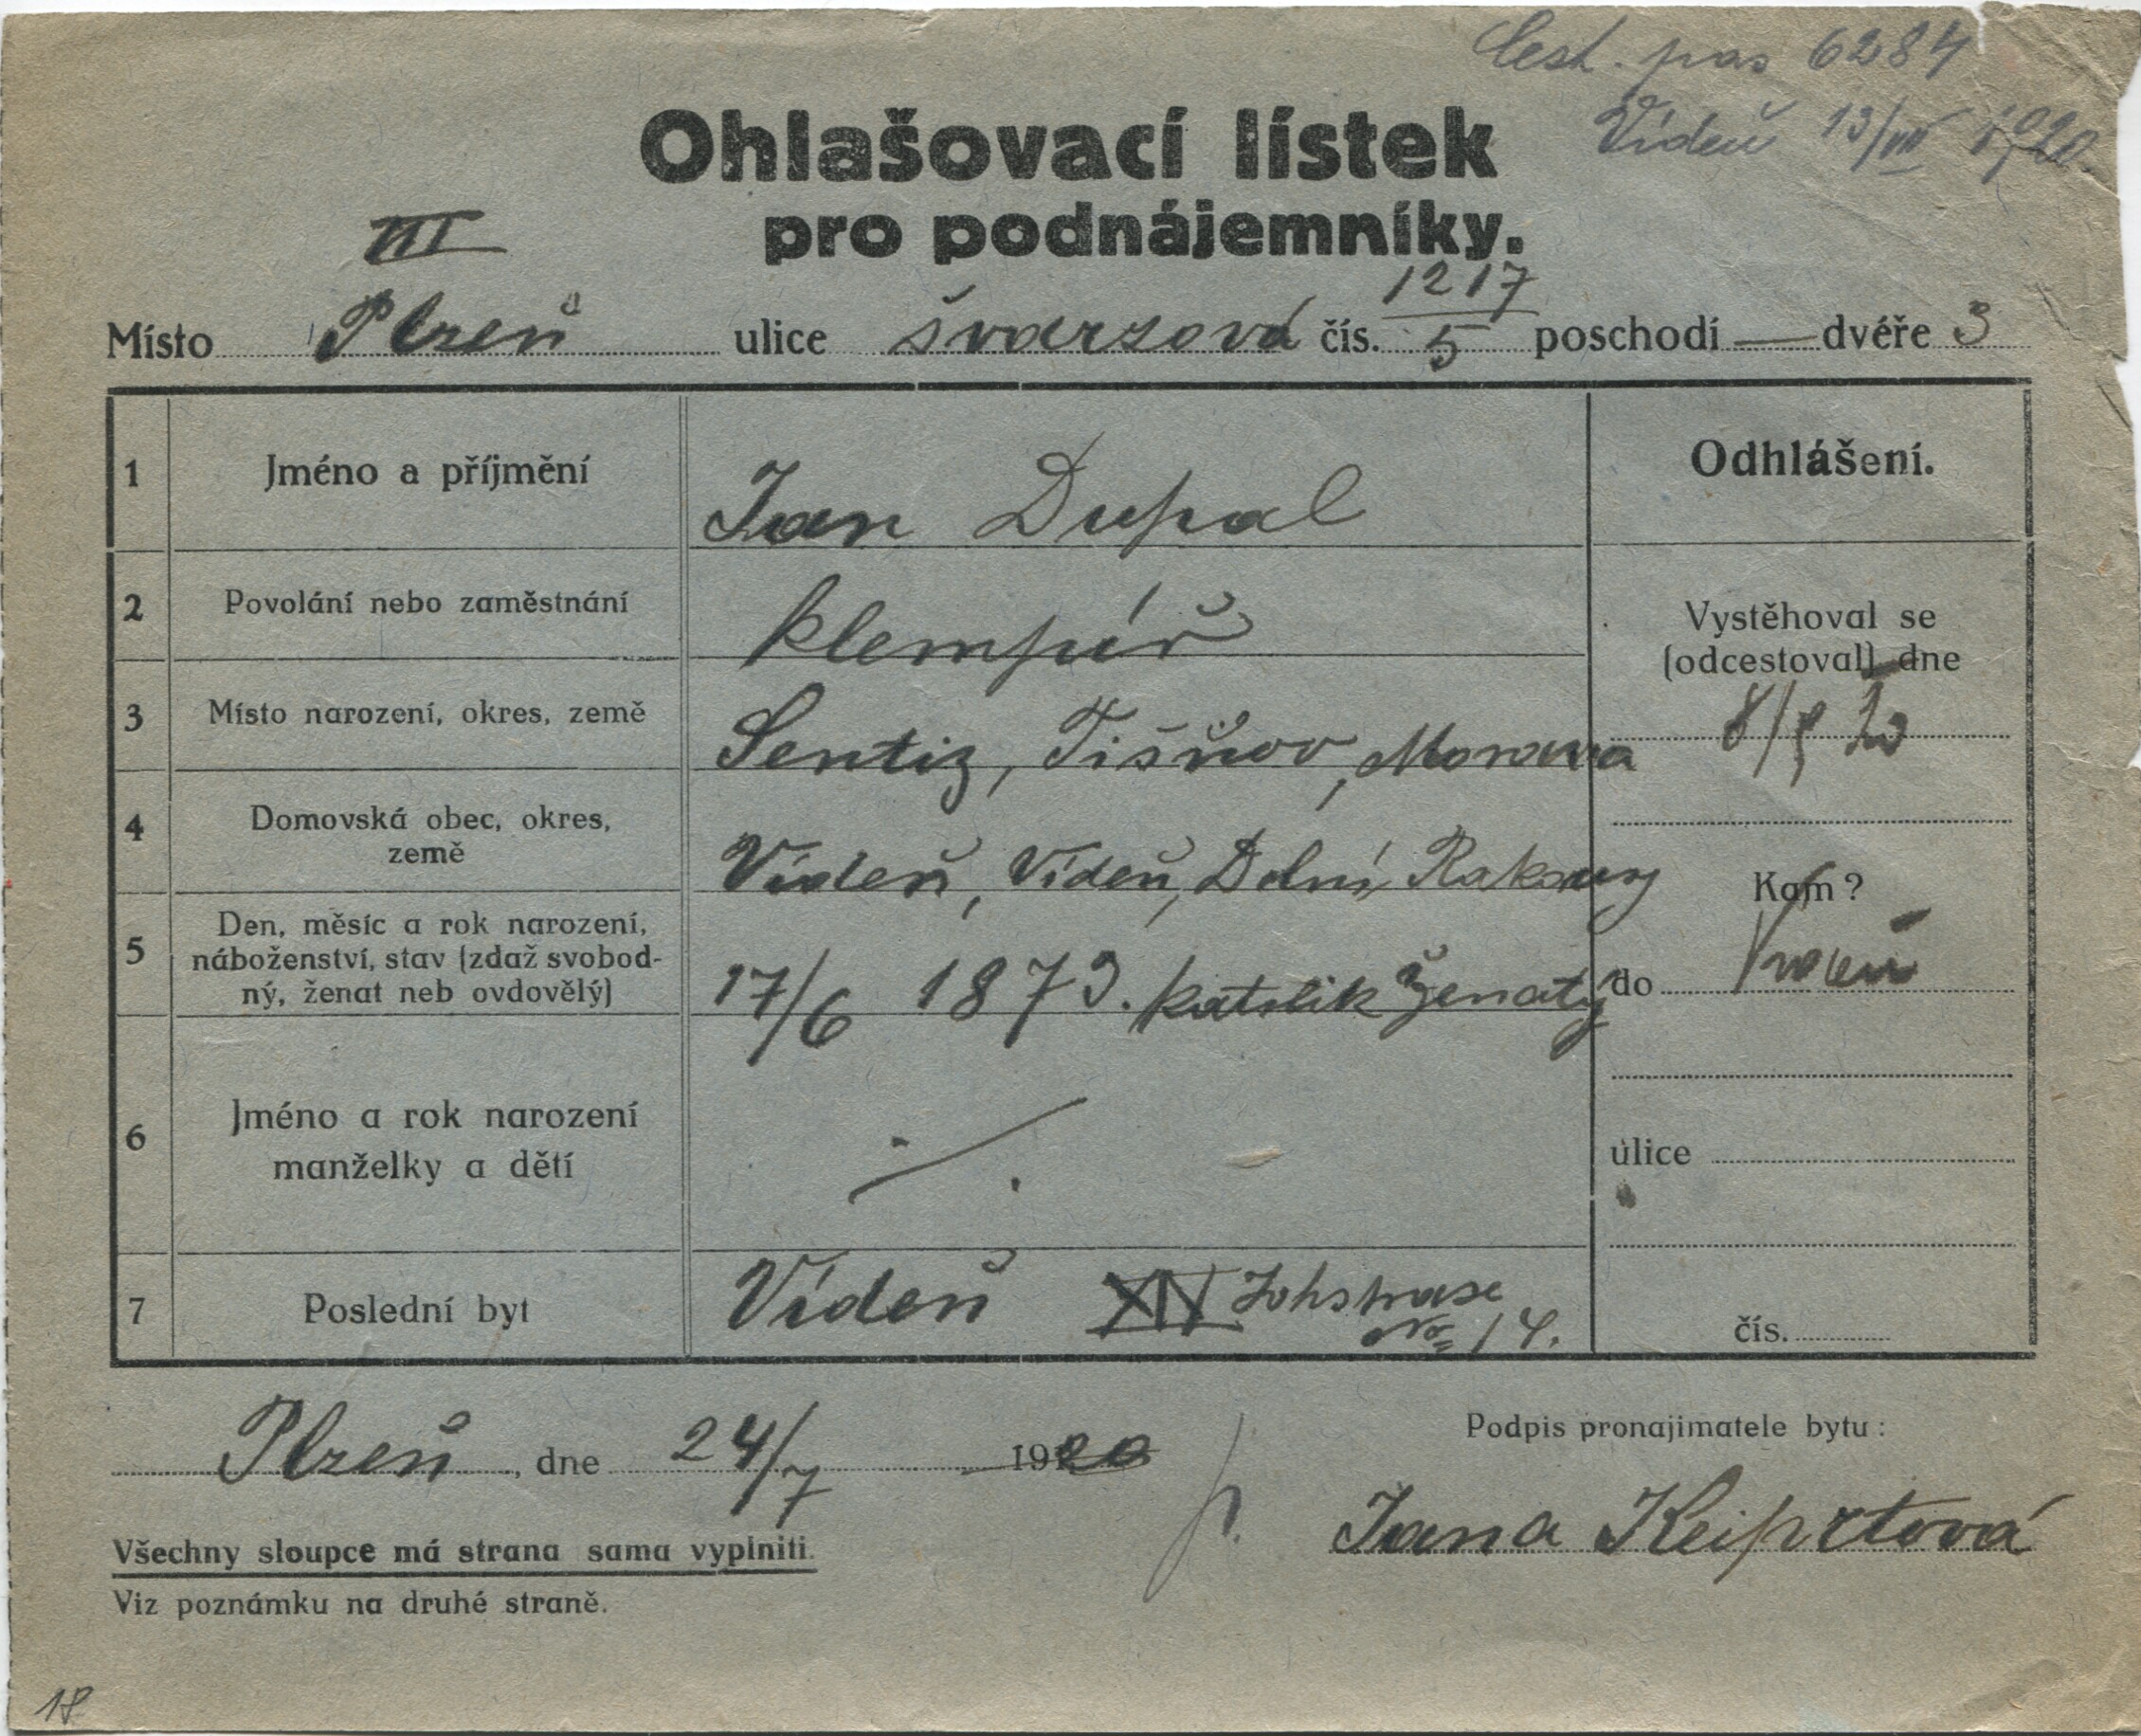 Cest. pas 6284
Vídeň 13/VII 1920
Ohlašovací lístek
pro podnájemníky.
III
1217
Místo Plzeň ulice švarzová čís. 5 poschodí — dvéře 3
1 Jméno a příjmění Jan Dupal
Odhlášení.
2 Povolání nebo zaměstnání klempíř
Vystěhoval se
(odcestoval) dne
3 Místo narození, okres, země Sentiz, Tišňov, Morava
4 Domovská obec, okres,
země
Vídeň, Vídeň, Dolní Rakousy
Kam?
5 Den, měsíc a rok narození,
náboženství, stav (zdaž svobod-
ný, ženat neb ovdovělý)
17/6 1873. katolik ženatý
do
6 Jméno a rok narození
manželky a dětí
ulice
7 Poslední byt Vídeň XIV
No 14.
čís.
Plzeň, dne 24/7 1920
Podpis pronajimatele bytu:
p. Jana Keiprtová
Všechny sloupce má strana sama vyplniti.
Viz poznámku na druhé straně.
18